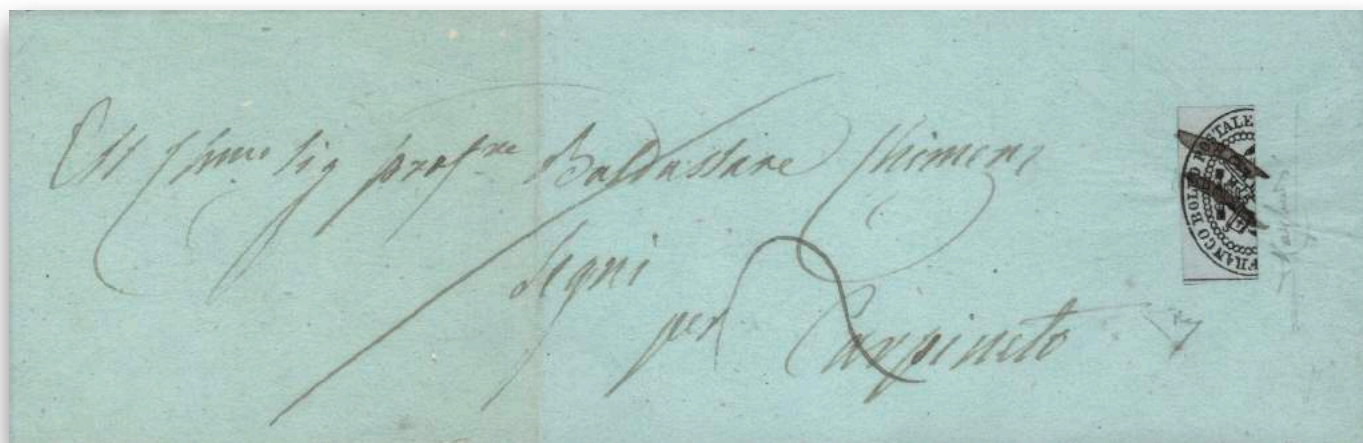 sig prof.re Baldassare Chimenz
Segni
per Carpineto
FRANCO BOLLO POSTALE